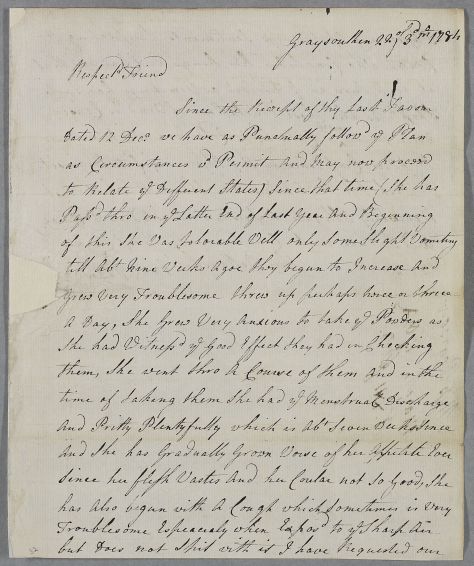 Graysouthen 22 of 3d mo 1784
Respectd Friend
Since the Receipt of thy Last Favour
Dated 12 Decr we have as Punctually follow'd ye Plan
as Circumstances wd Permit and May now proceed
to Relate ye Different States) Since that time (She has
Pass'd thro in ye Latter End of Last Year And Beginning
of this She Was tolorable Well only Some Slight Vomiting
till Abt Nine Weeks Agoe they begun to Increase And
Grew Very Troublesome threw up perhaps twice or thrice
A Day, She Grew Very Anxious to take ye Powders as
She had Witness'd ye Good Effect they had in Checking
them, She went thro A Course of them And in the
time of Taking them She had ye Menstrual Discharge
And Pritty Plentyfully which is Abt Seven Weeks Since
And She has Gradually Grown Worse of her Appitite Ever
Since her flesh Wastes And her Coular not So Good, She
has Also begun with A Cough which Sometimes is Very
Troublesome Espeacialy when Expos'd to ye Sharp Air
but Does not Spit with it I have Requested our